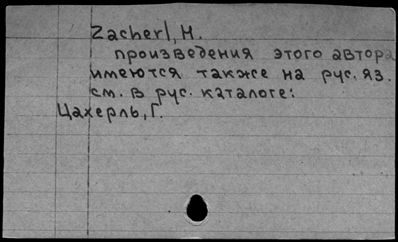 Zacherl, H.
произведения этого автора
имеются также на рус. яз.
см. в рус. каталоге:
Цахерль, Г.